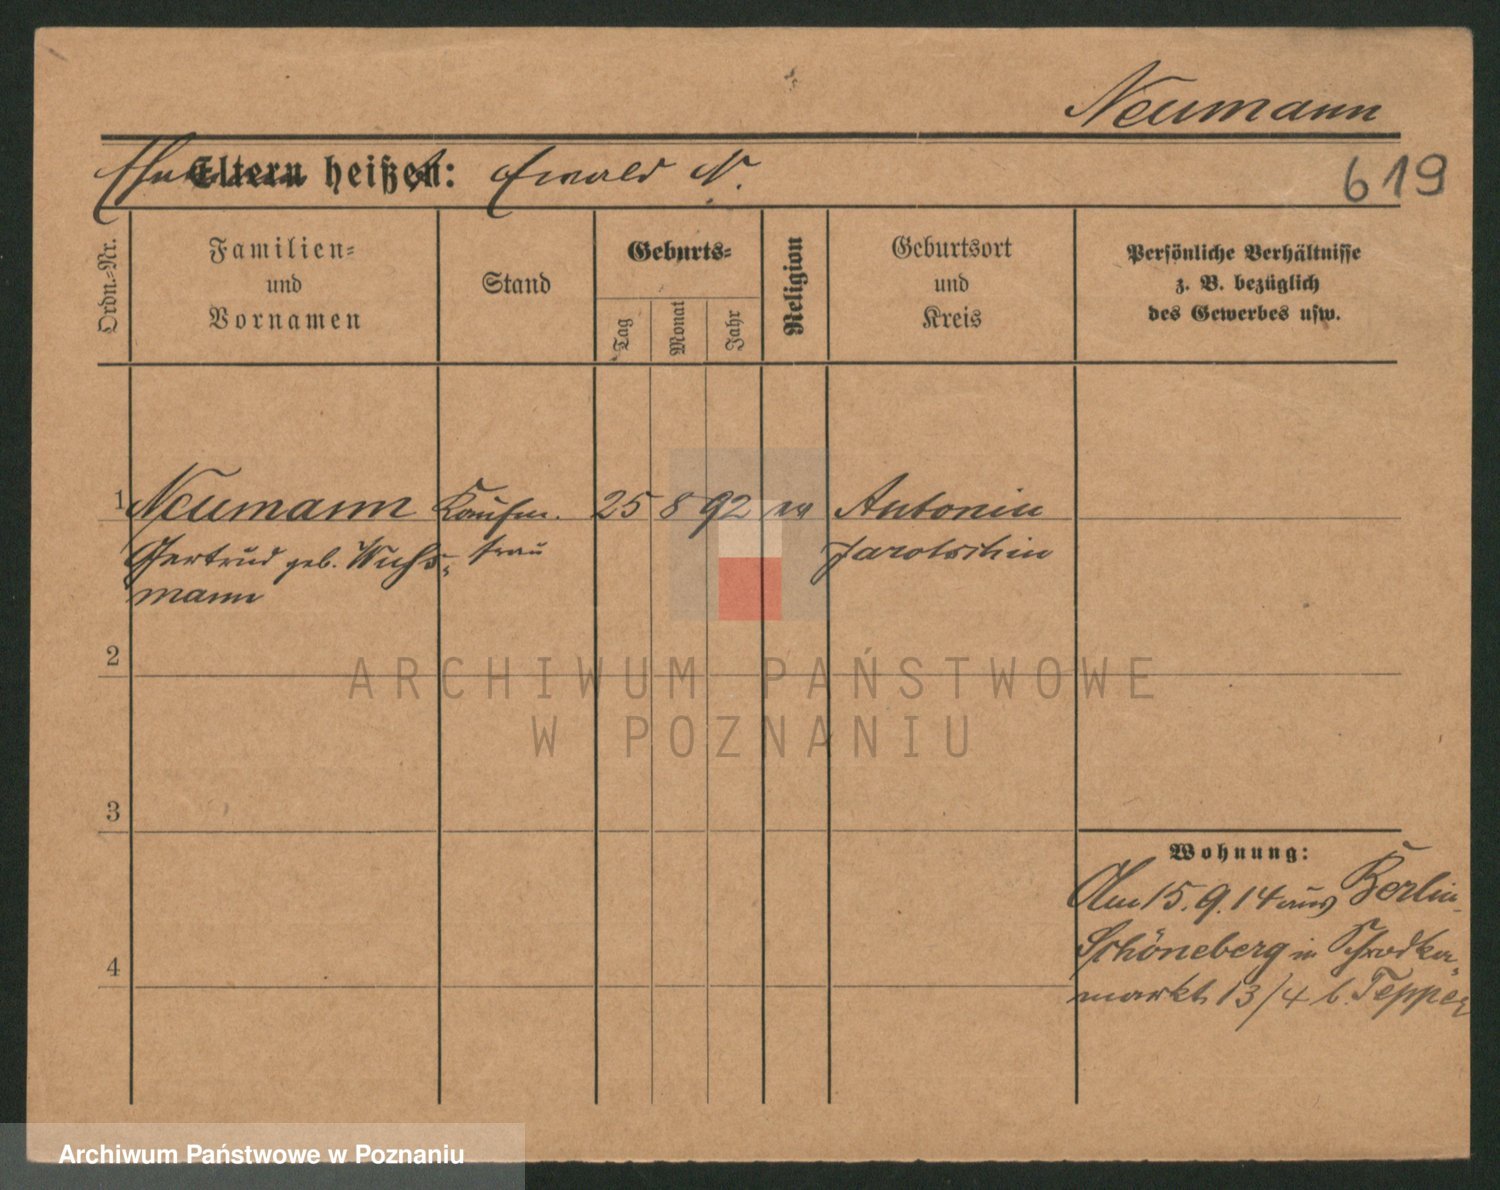 Neumann
Eltern heißen: Ewald N.
619
Ordn.-Nr.
Familien-
und
Vornamen
Stand
Geburts-
Tag
Monat
Jahr
Religion
Geburtsort
und
Kreis
Persönliche Verhältnisse
z. B. bezüglich
des Gewerbes usw.
1 Neumann Kaufm. 25 8 92 ev Antonin
Gertrud geb. frau Jarotschin
mann
2
3
4
Wohnung:
Am 15.9.14 aus Berlin-
Schöneberg in Schrodka-
markt 13/4 b. Tepper
ARCHIWUM PAŃSTWOWE
W POZNANIU
Archiwum Państwowe w Poznaniu